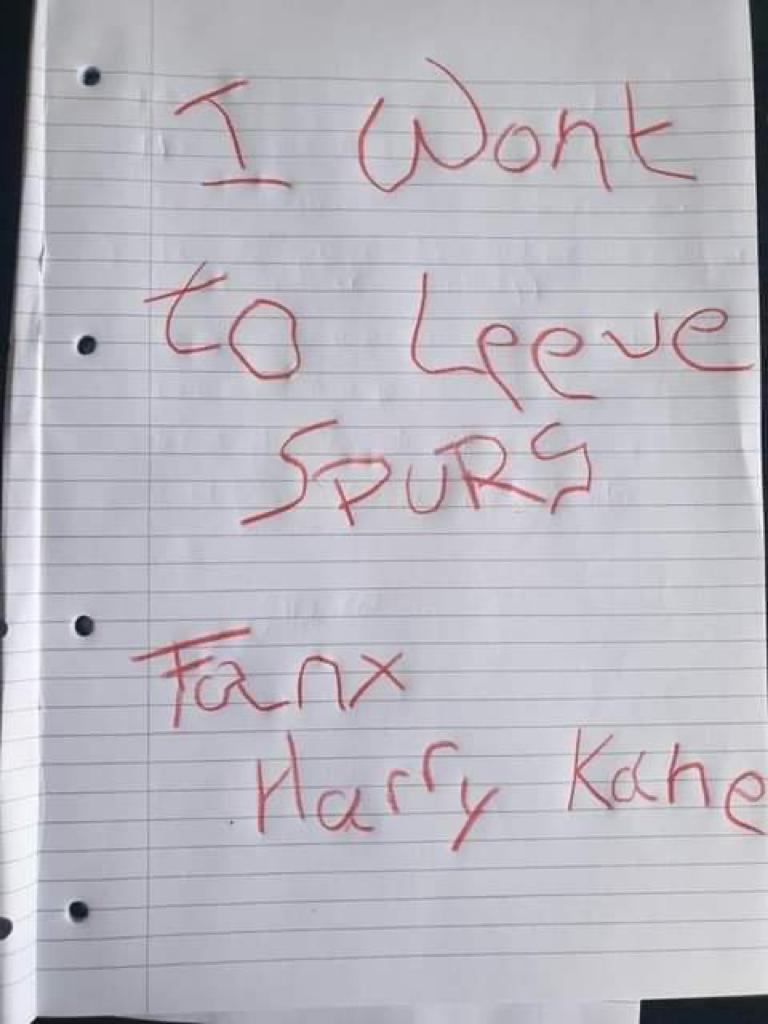 I Wont
to Leeve
SPURS
Fanx
Harry Kane